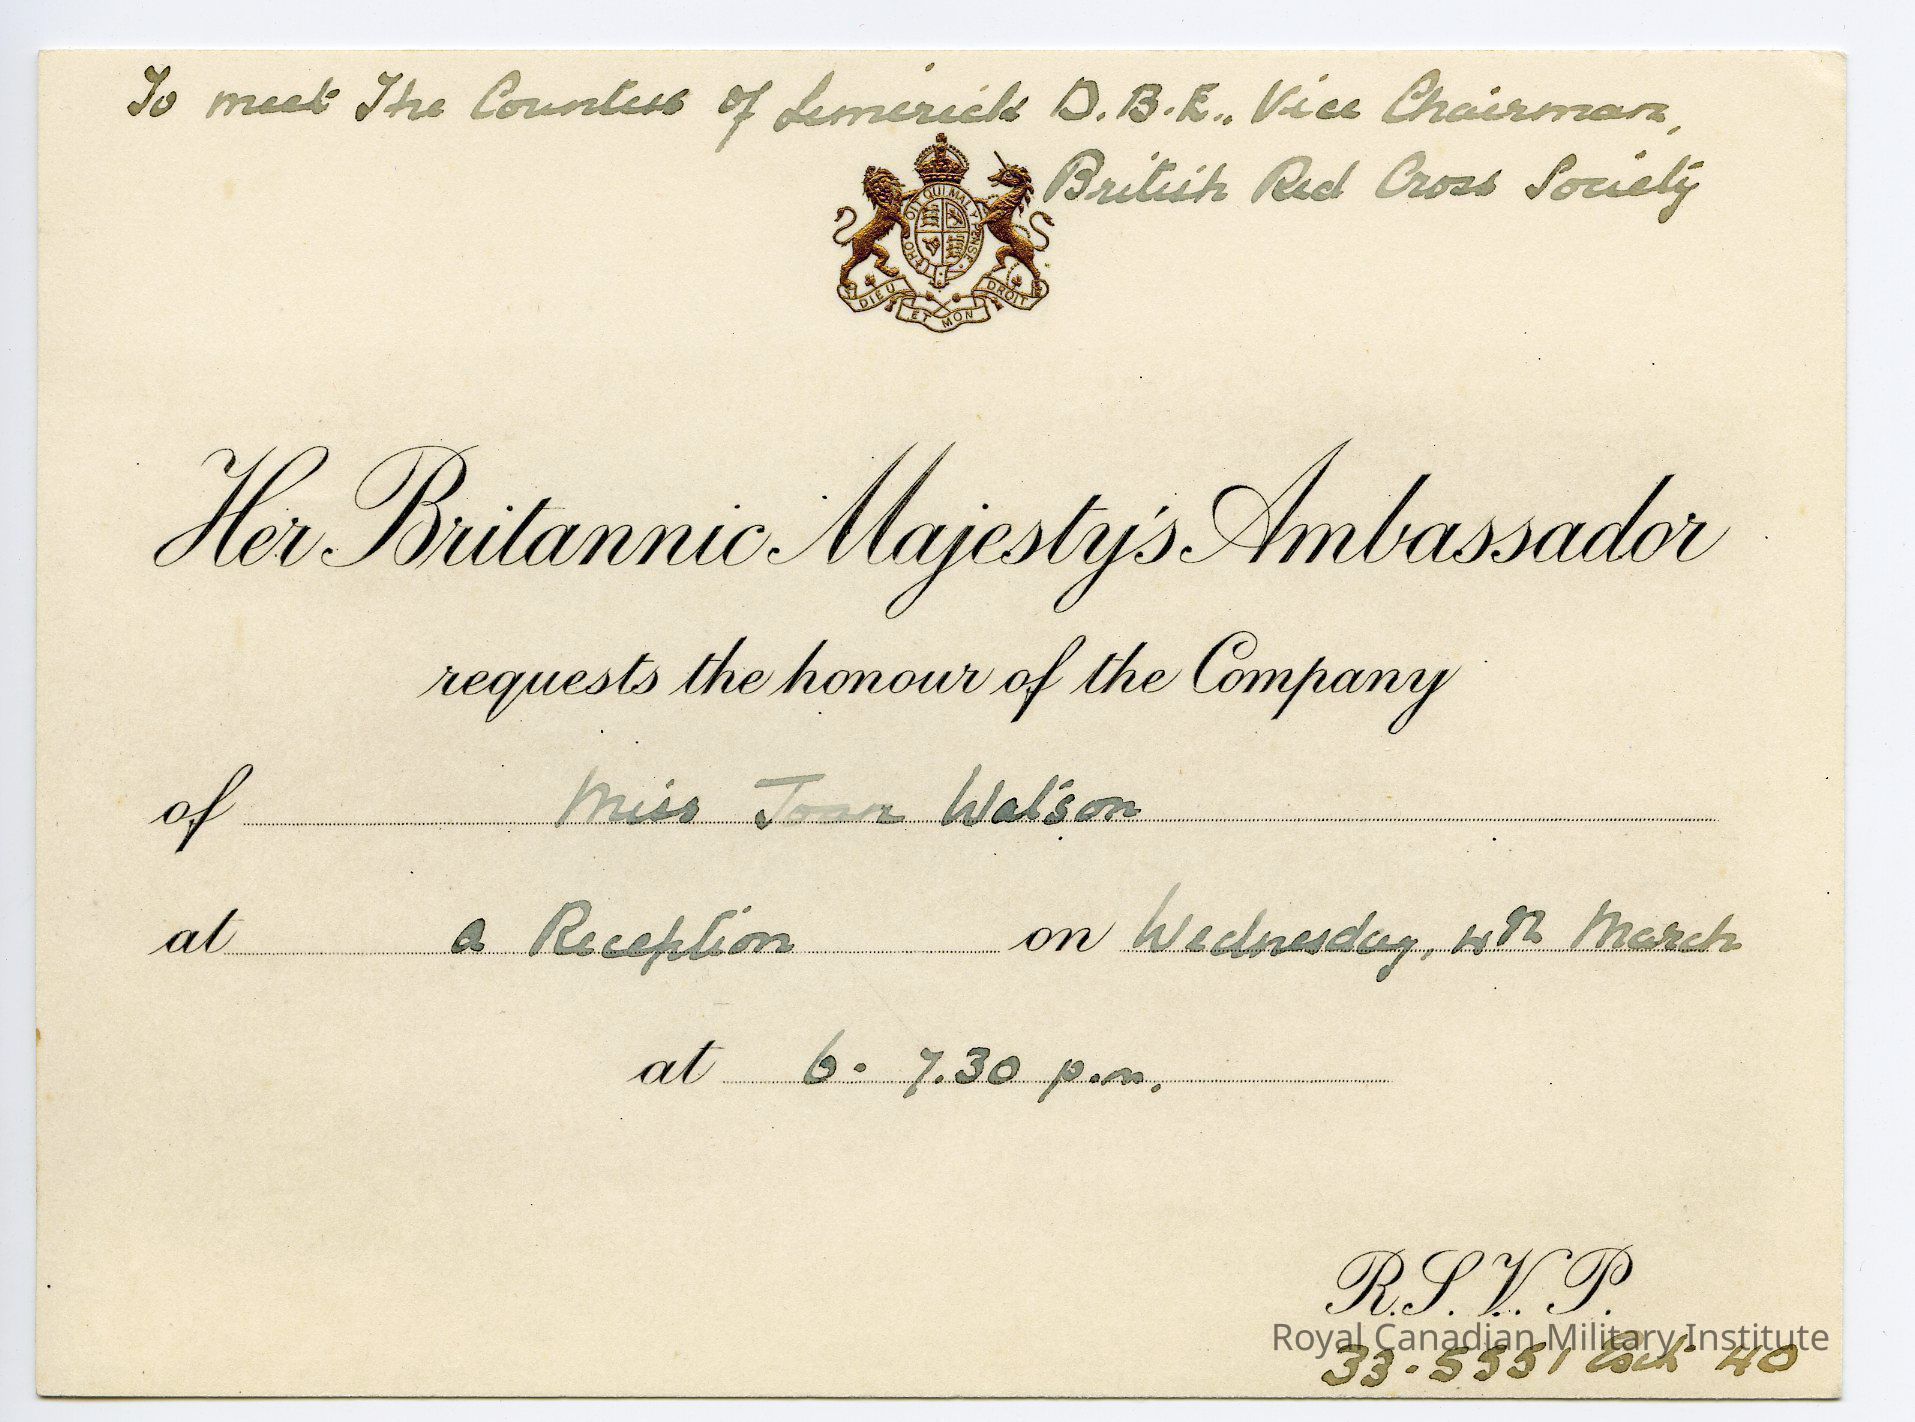 To meet The Countess of Limerick D.B.E., Vice Chairman,
British Red Cross Society
HONI SOIT QUI MAL Y PENSE
DIEU ET MON DROIT
Her Britannic Majesty's Ambassador
requests the honour of the Company
of Miss Joan Watson
at a Reception on Wednesday, 4th March
at 6. 7.30 p.m.
R.S.V.P.
Royal Canadian Military Institute
33.5551 40